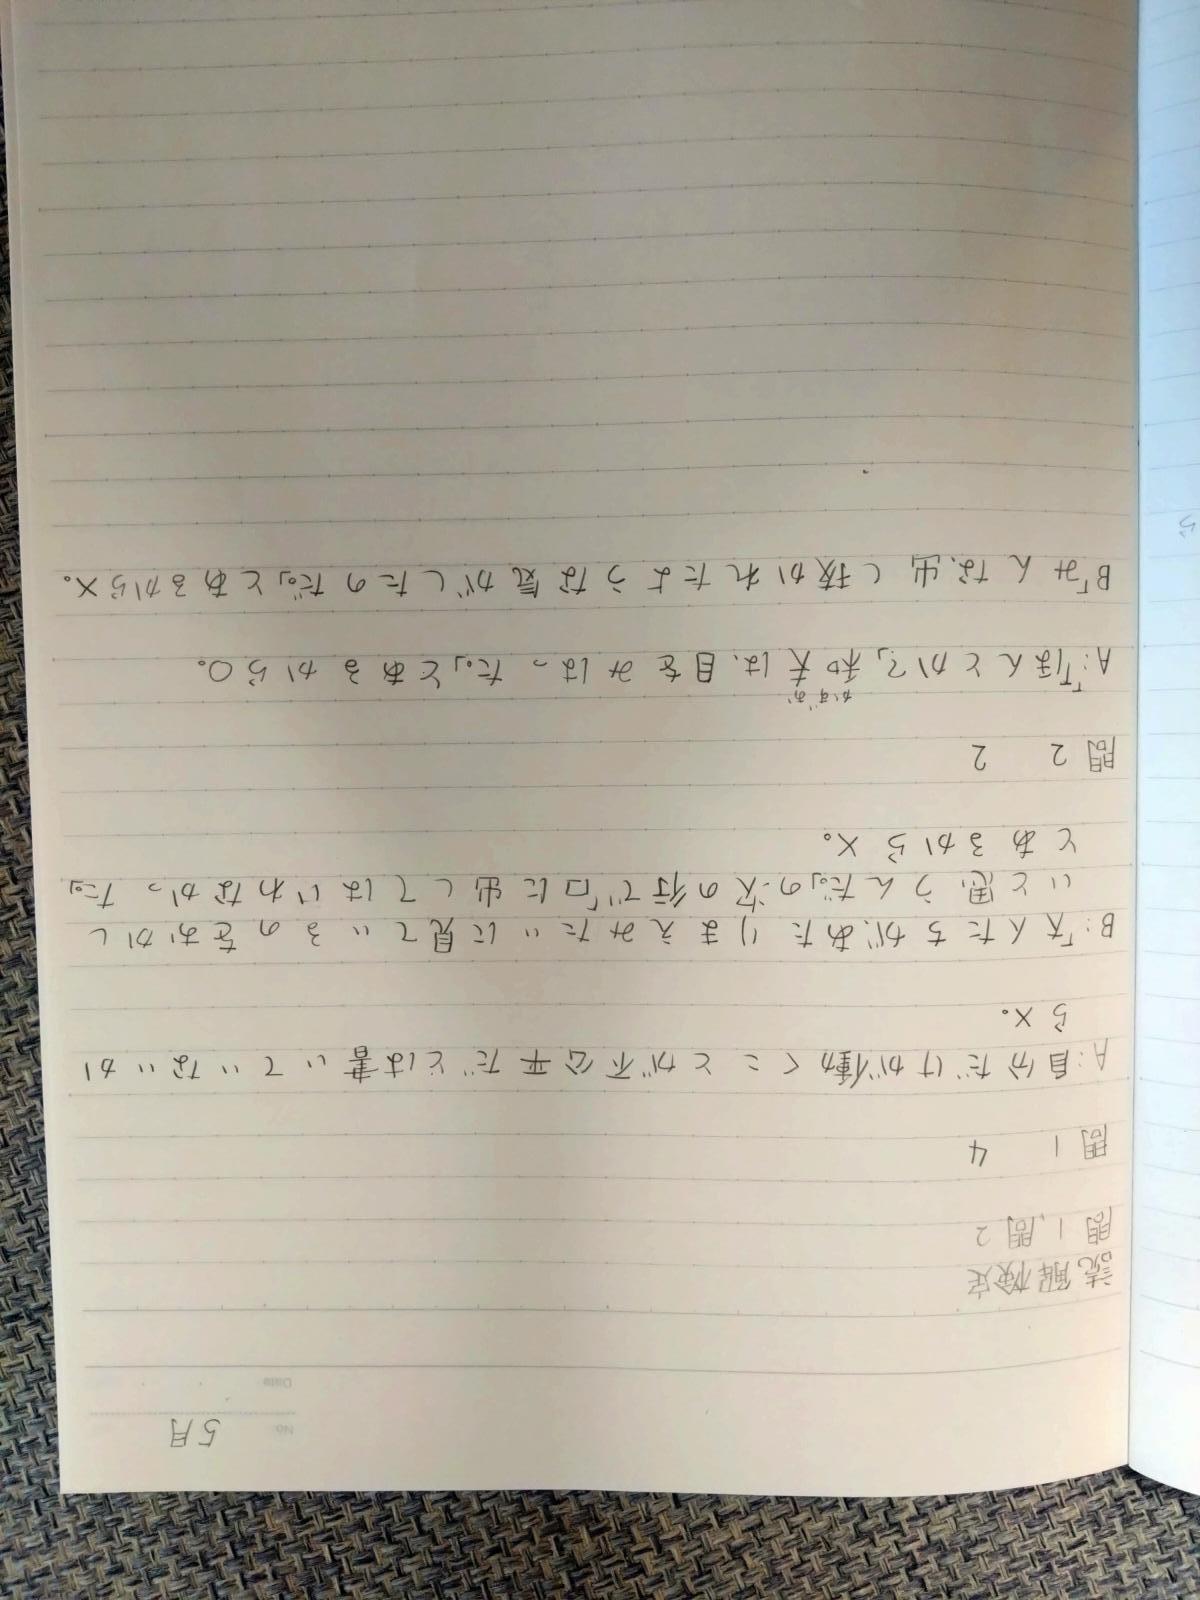 No.
5月
Date
読解検定
問1、問2
問1 4
A:自分だけが働くことが不公平だとは書いていないか
ら×。
B:「大人たちが、あたりまえみたいに見ているのをおかし
いと思うんだ。」の次の行で「口に出してはいわなかった。」
とあるから×。
問2 2
かずお
A:「『ほんとか?』和夫は、目をみはった。」とあるから○。
B「みんな、出し抜かれたような気がしたのだ。」とあるから×。
ら